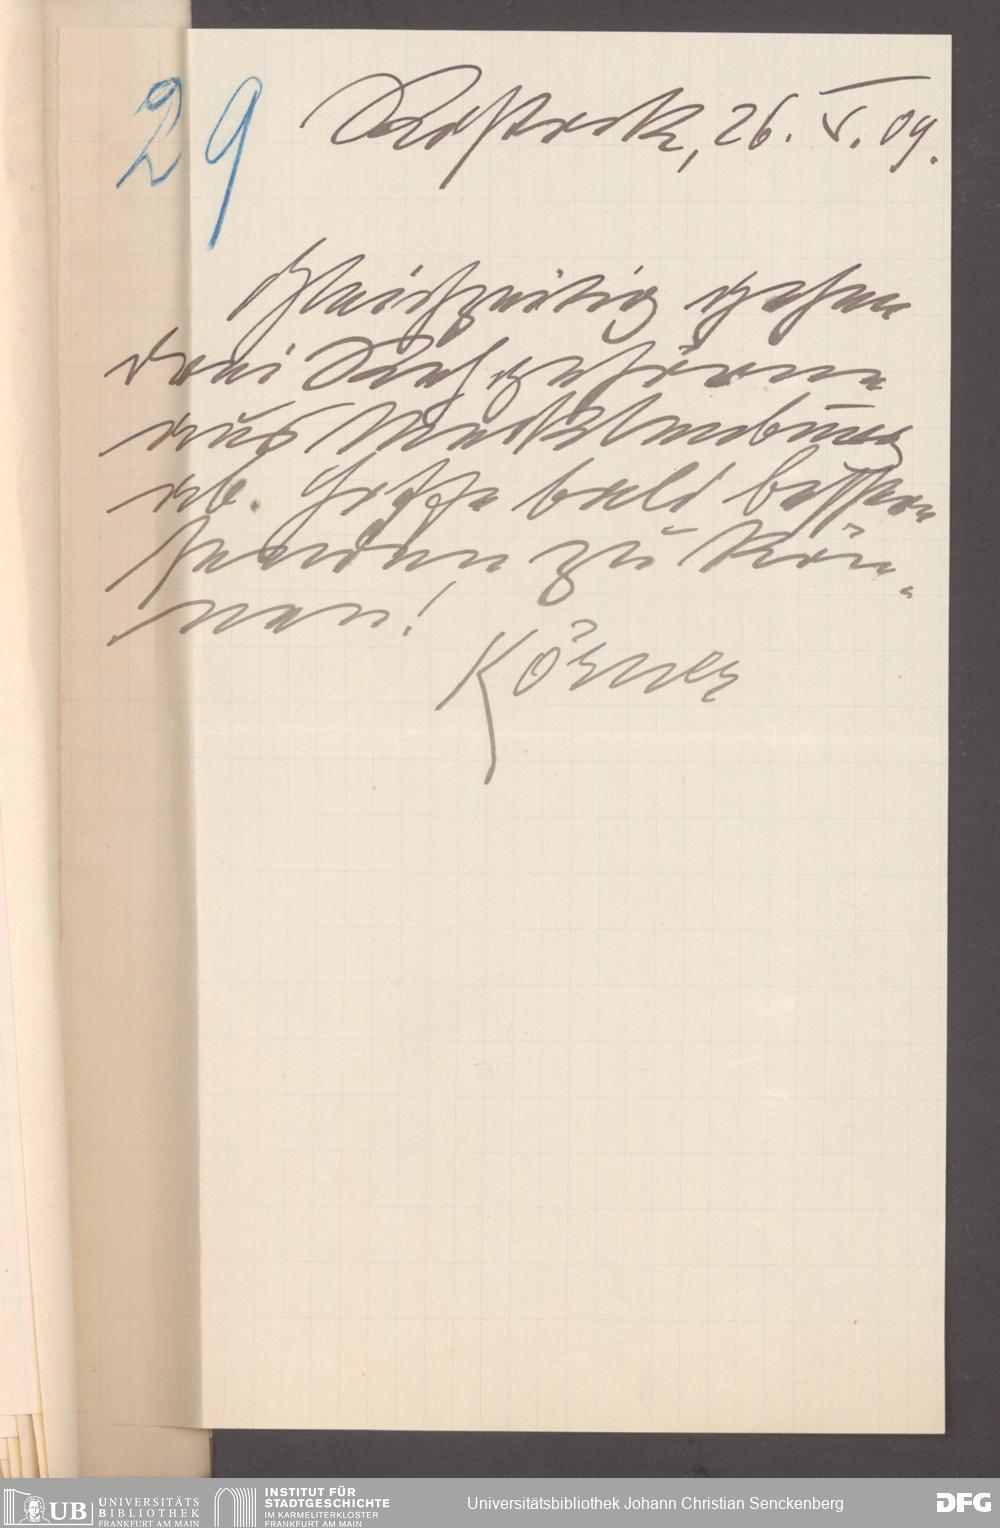 29
Rostock, 26. V. 09.
Gleichzeitig gehen
drei Rehgehirne
aus Mecklenburg
ab. Hoffe bald bessere
senden zu kön-
nen!
Körner
UB UNIVERSITÄTS
BIBLIOTHEK
FRANKFURT AM MAIN
INSTITUT FÜR
STADTGESCHICHTE
IM KARMELITERKLOSTER
FRANKFURT AM MAIN
Universitätsbibliothek Johann Christian Senckenberg
DFG